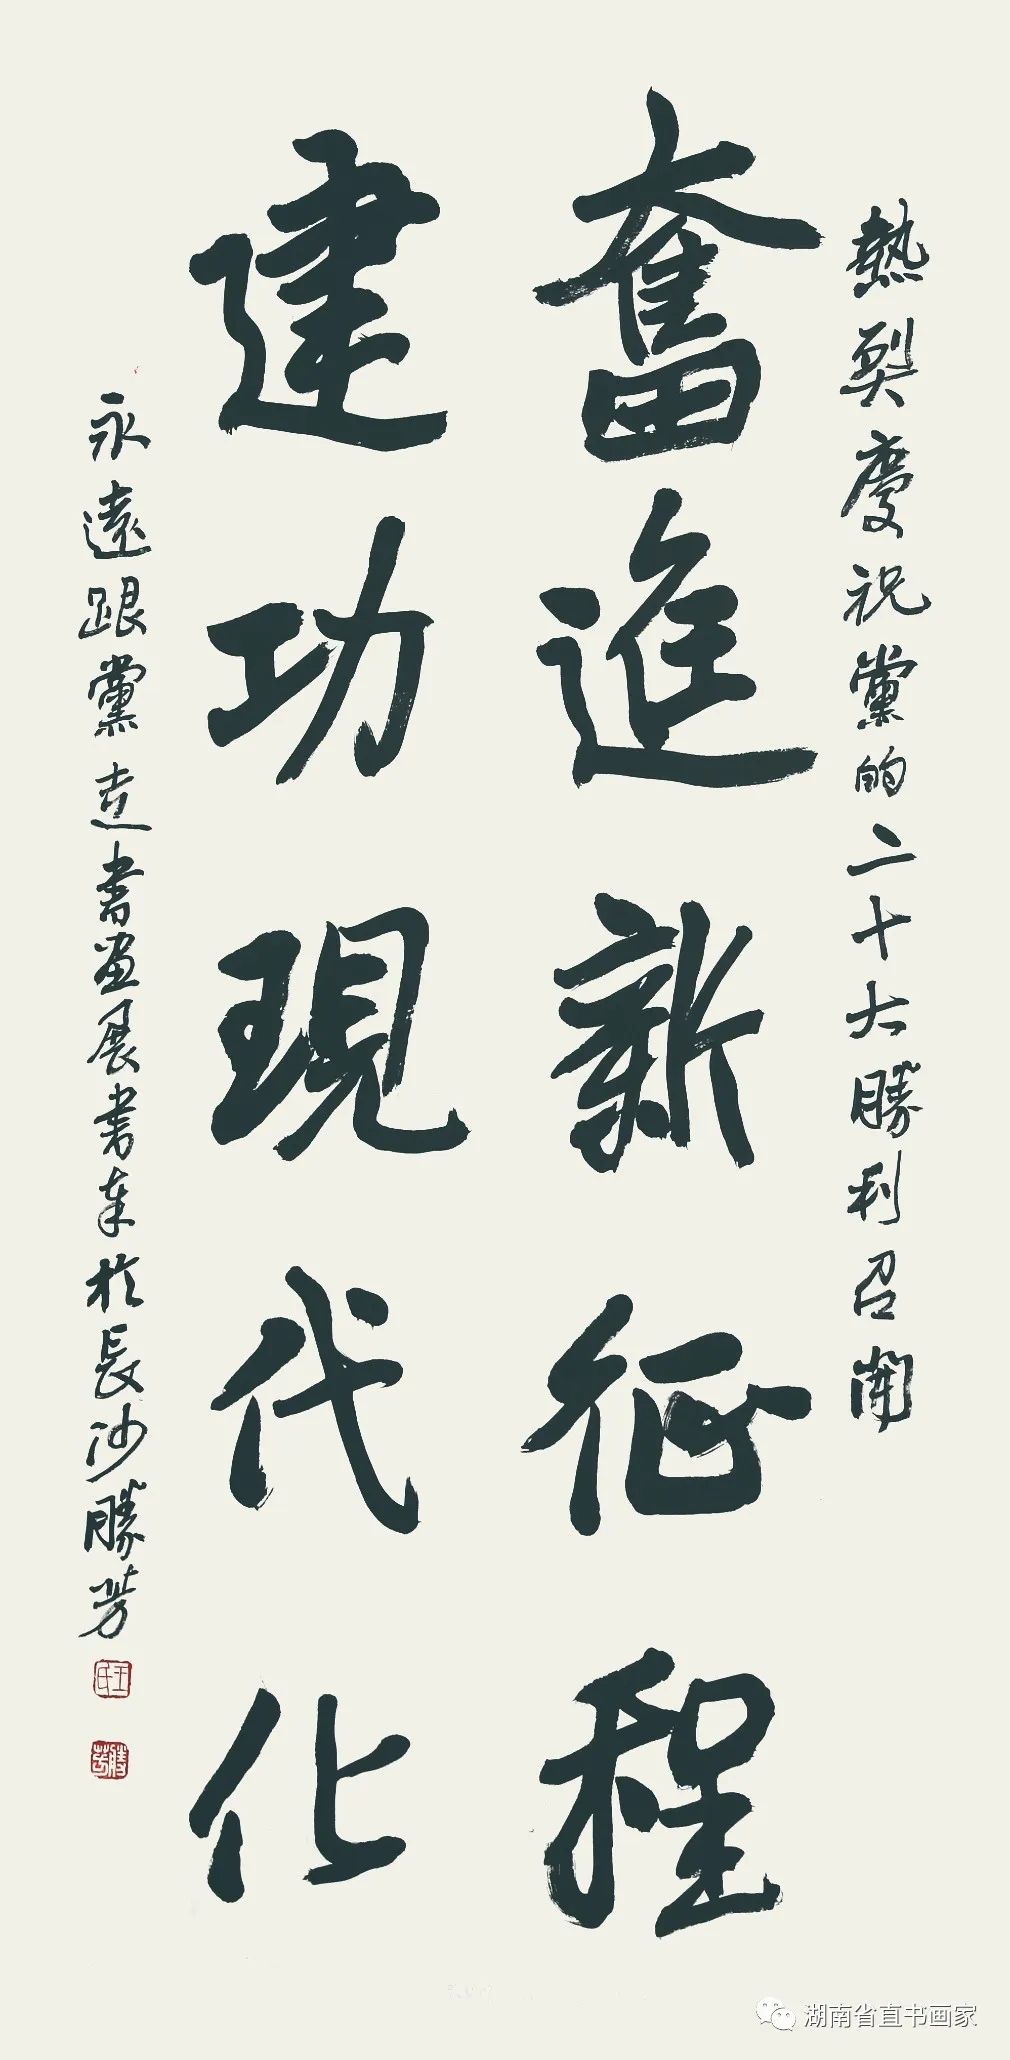 熱烈慶祝黨的二十大勝利召開
奮進新征程
建功現代化
永遠跟黨走書畫展書奉於長沙勝芳
王氏
勝芳
湖南省直书画家